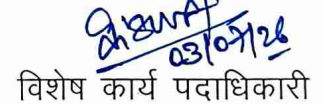 03/07/26
विशेष कार्य पदाधिकारी